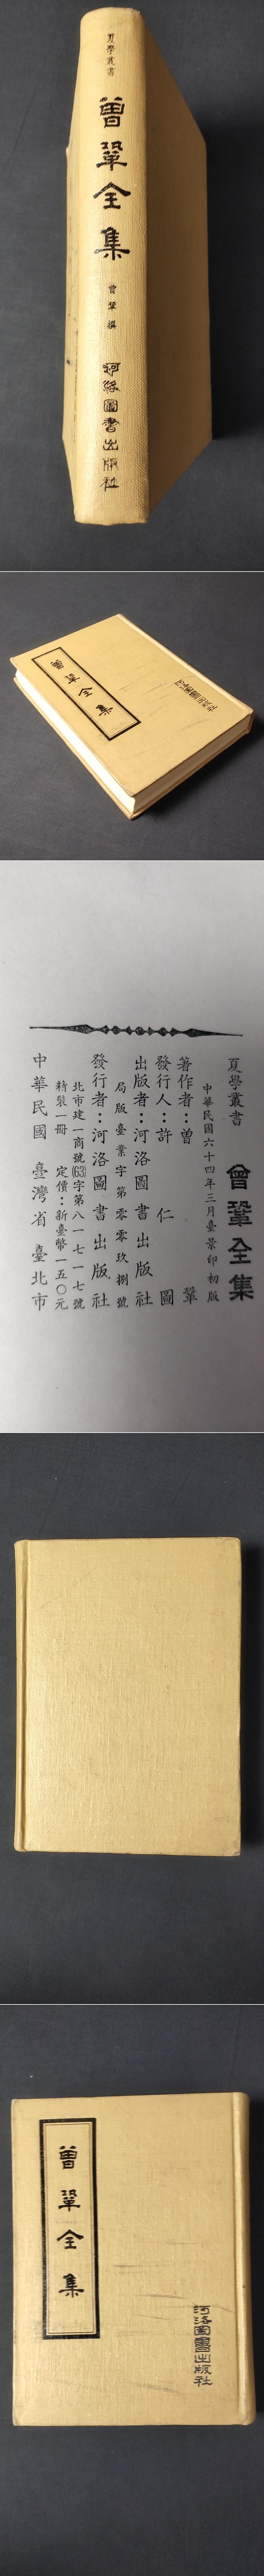 夏學叢書
曾鞏全集
曾鞏撰
河洛圖書出版社
曾鞏全集
河洛圖書出版社
夏學叢書 曾鞏全集
中華民國六十四年三月臺景印初版
著作者：曾鞏
發行人：許仁圖
出版者：河洛圖書出版社
局版臺業字第零零玖捌號
發行者：河洛圖書出版社
北市建一商號(63)字第八一一七一七號
精裝一冊 定價：新臺幣一五〇元
中華民國 臺灣省 臺北市
曾鞏全集
河洛圖書出版社